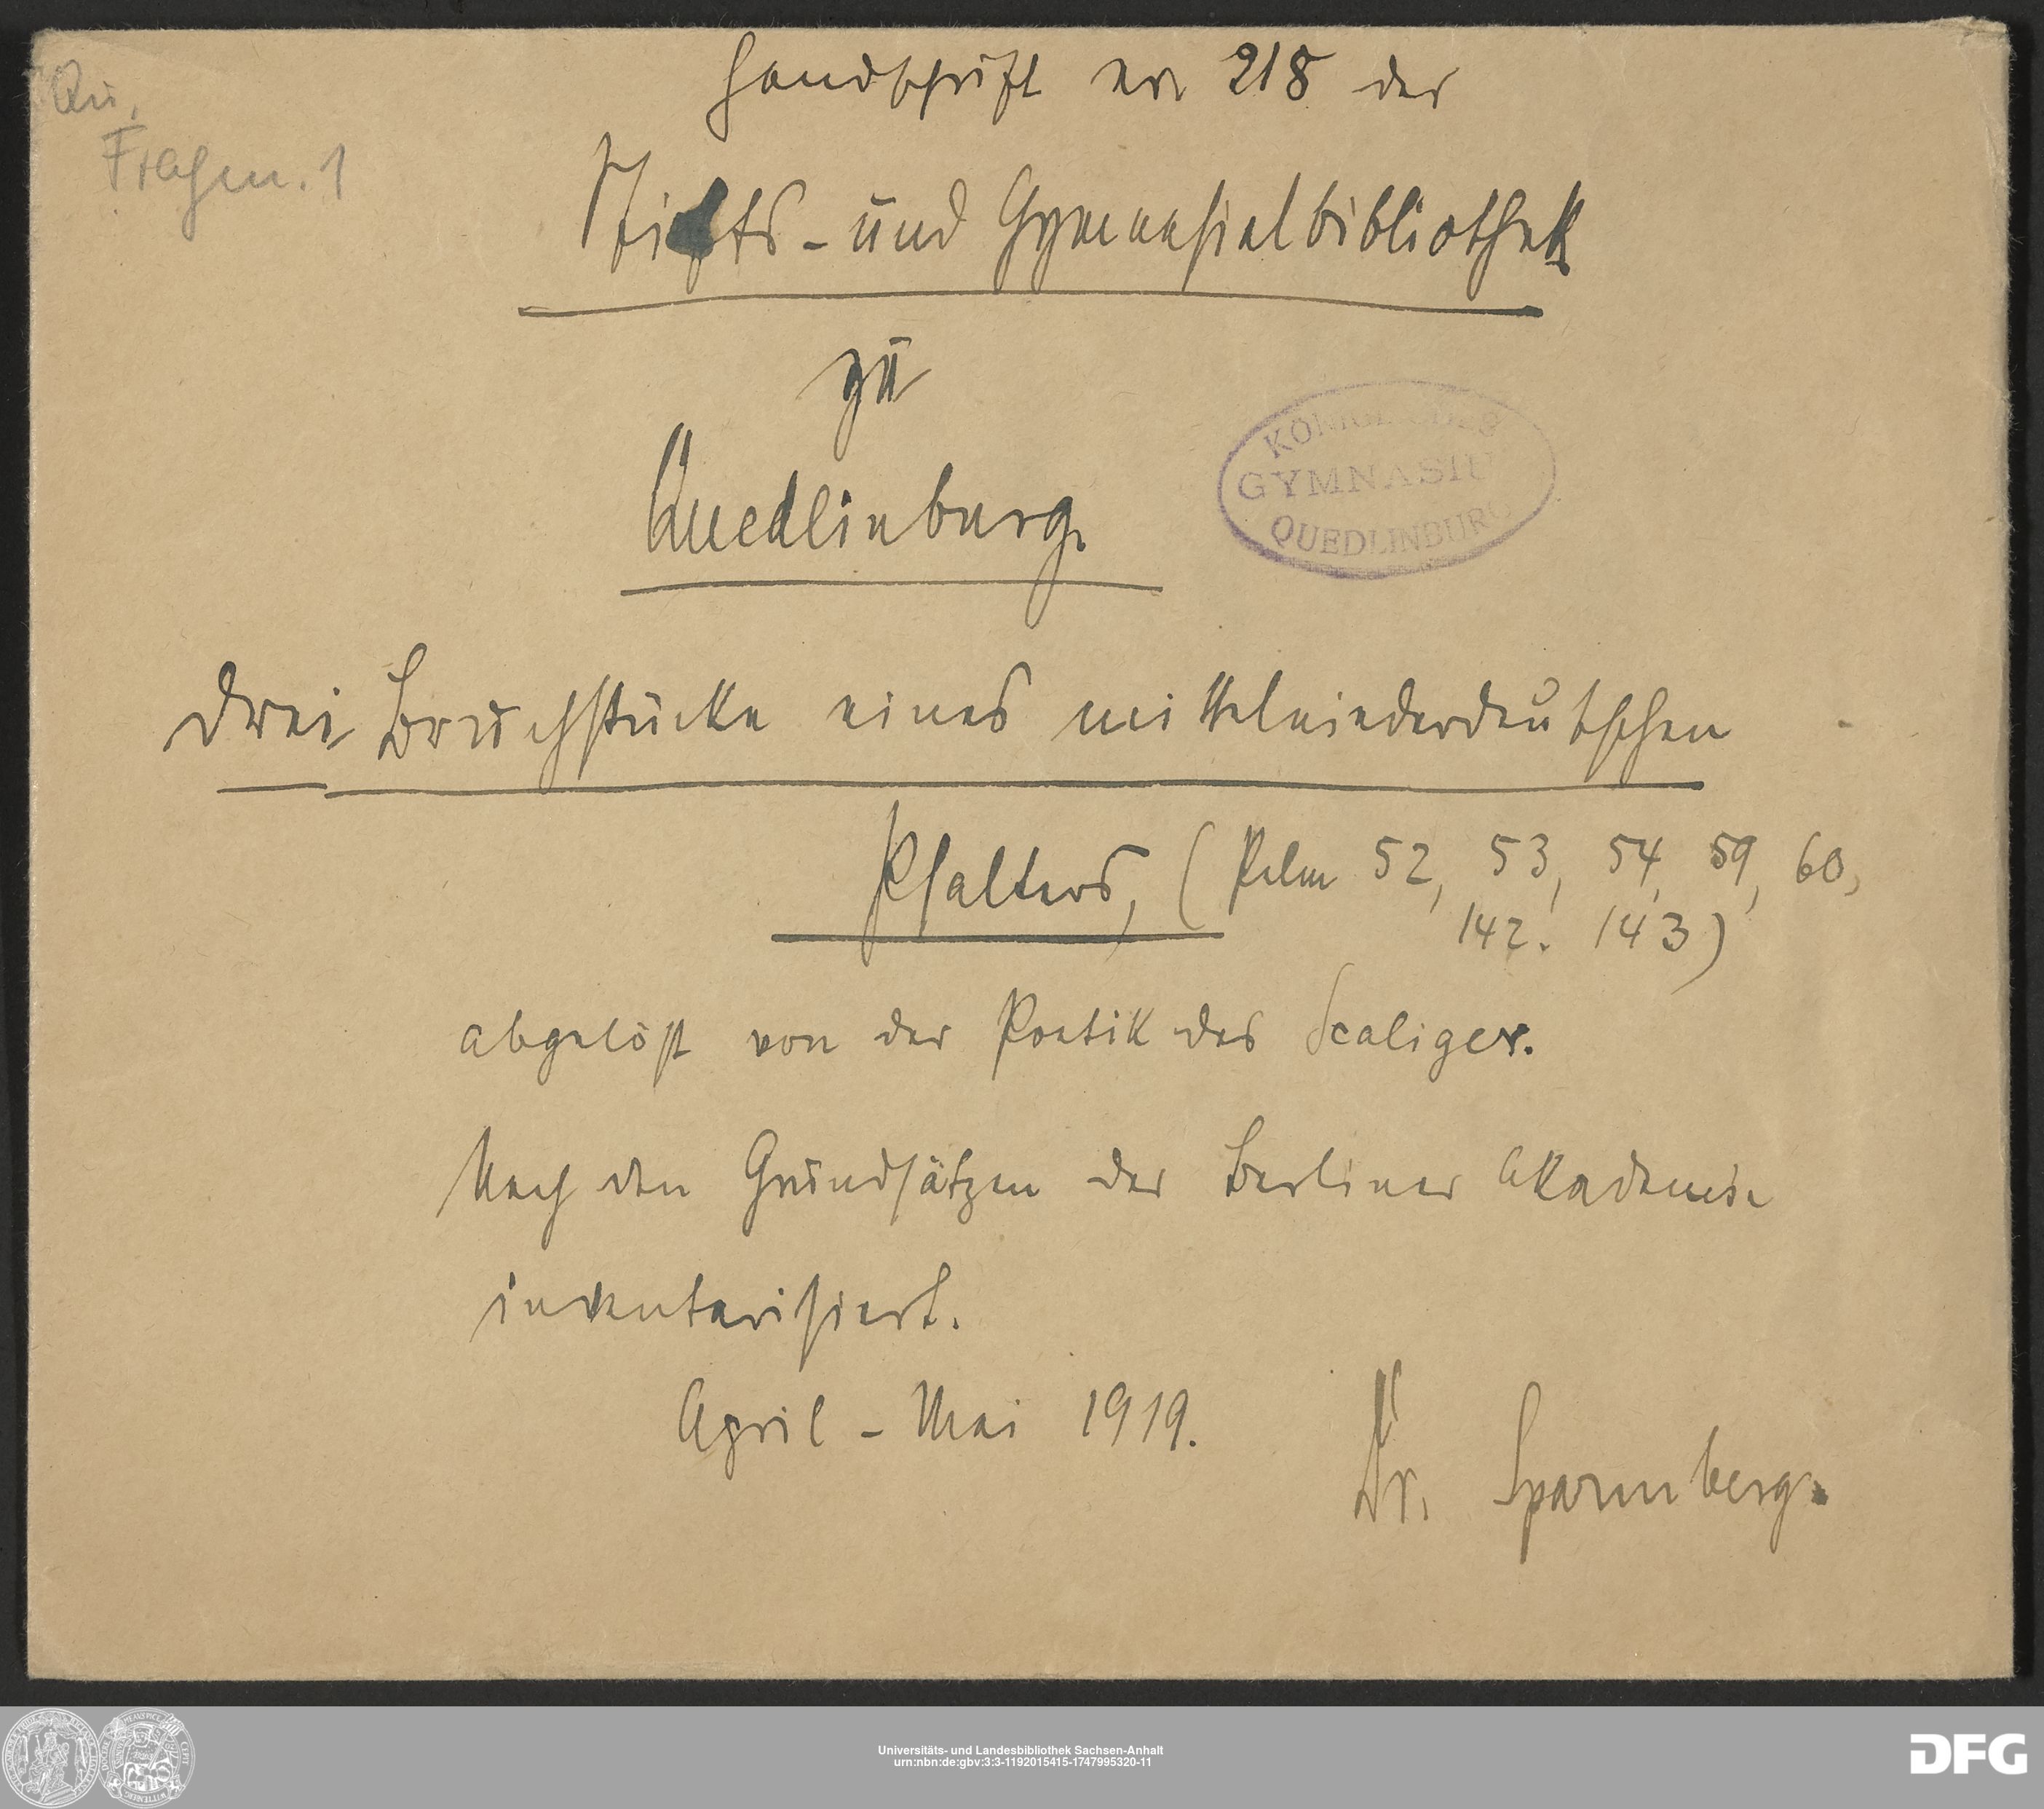 Qu.
Fragm. 1
Handschrift nr. 218 der
Stifts- und Gymnasialbibliothek
zu
Quedlinburg.
KÖNIGLICHES
GYMNASIUM
QUEDLINBURG
Drei Bruchstücke eines mittelniederdeutschen
Psalters, (Psalm 52, 53, 54, 59, 60,
142. 143)
abgelöst von der Poetik des Scaliger.
Nach den Grundsätzen der Berliner Akademie
inventarisiert.
April - Mai 1919.
Dr. Sparmberg.
Universitäts- und Landesbibliothek Sachsen-Anhalt
urn:nbn:de:gbv:3:3-1192015415-1747995320-11
DFG